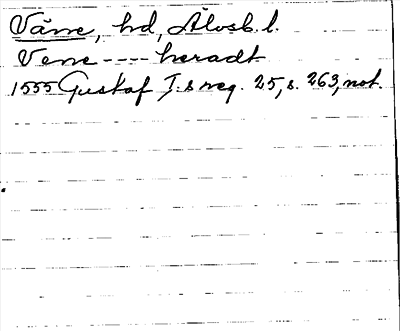 Väne, hd, Älvsb. l.
Vene ---- heradt
1555 Gustaf I.s reg. 25, s. 263, not.